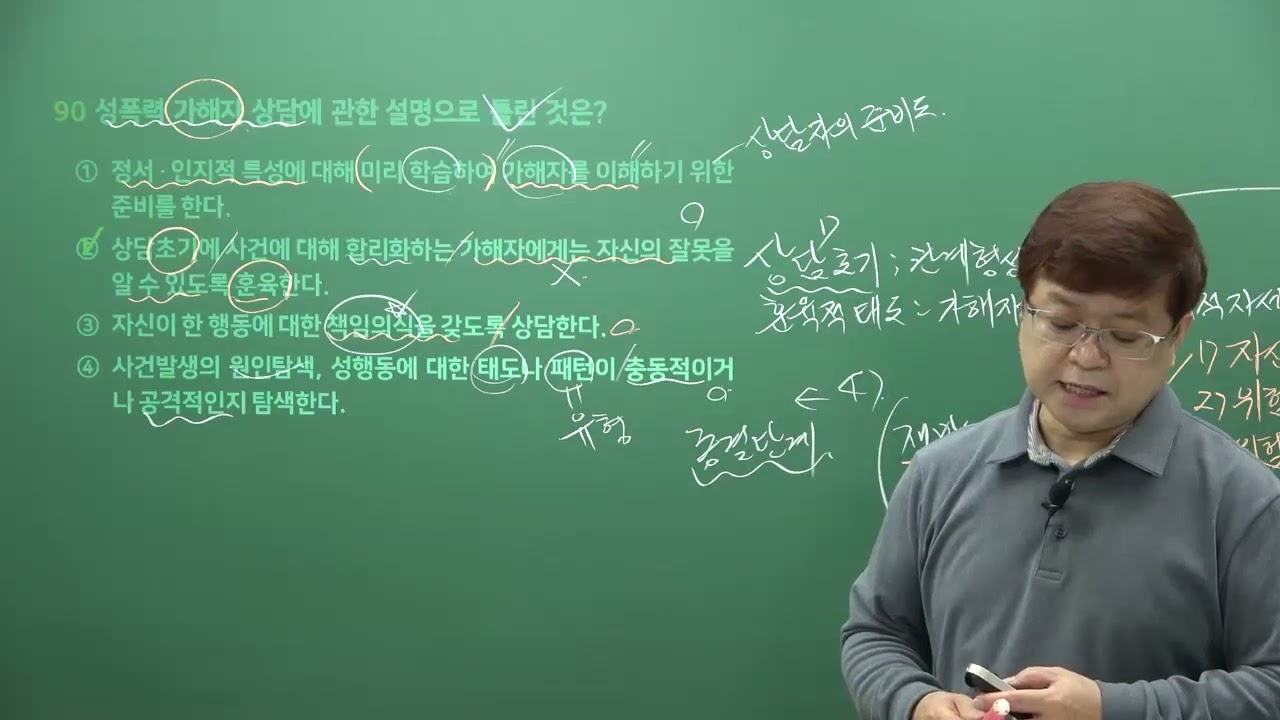 90 성폭력 가해자 상담에 관한 설명으로 틀린 것은?
① 정서·인지적 특성에 대해 미리 학습하여 가해자를 이해하기 위한
준비를 한다.
② 상담초기에 사건에 대해 합리화하는 가해자에게는 자신의 잘못을
알 수 있도록 훈육한다.
③ 자신이 한 행동에 대한 책임의식을 갖도록 상담한다.
④ 사건발생의 원인탐색, 성행동에 대한 태도나 패턴이 충동적이거
나 공격적인지 탐색한다.
유형
상담자의 준비도.
상담초기 ; 관계형성
훈육적 태도 : 가해자
← 4)
종결단계.
1) 자신
2) 위험
위험